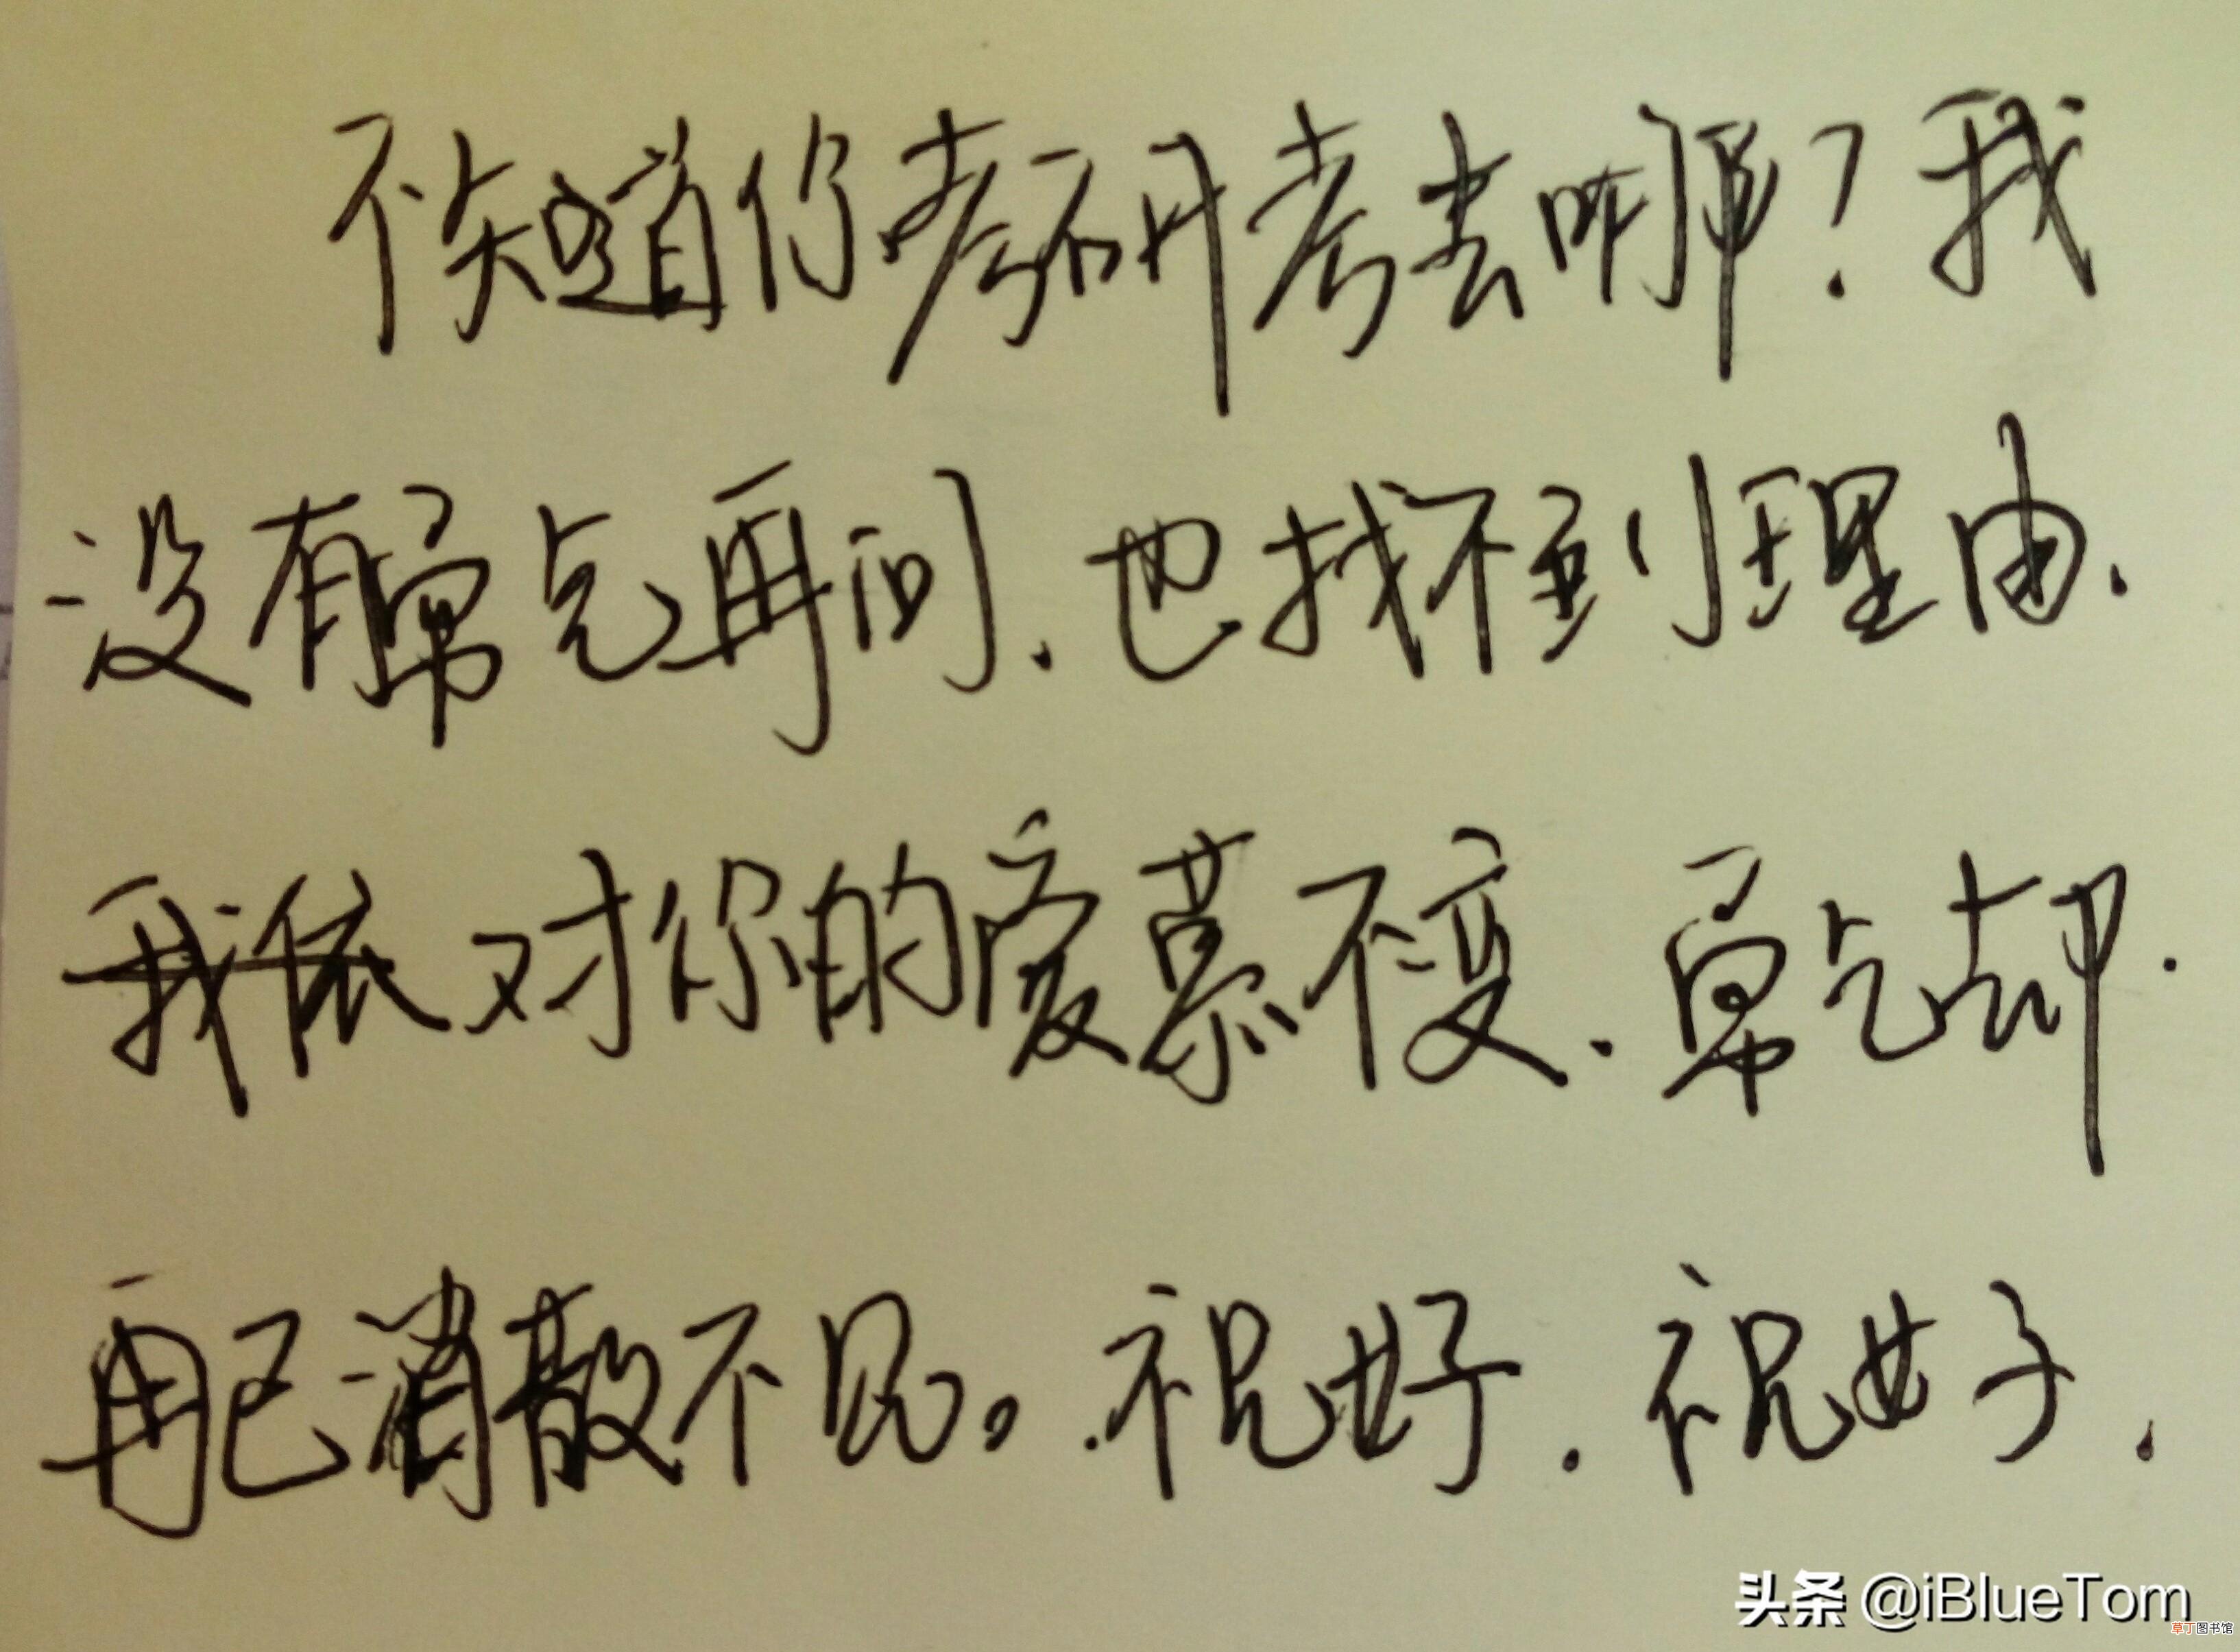 不知道你考研考去哪？我
没有勇气再问.也找不到理由.
我依对你的爱慕不变.勇气却.
再已消散不见。.祝好.祝好.
头条 @iBlueTom
草丁图书馆